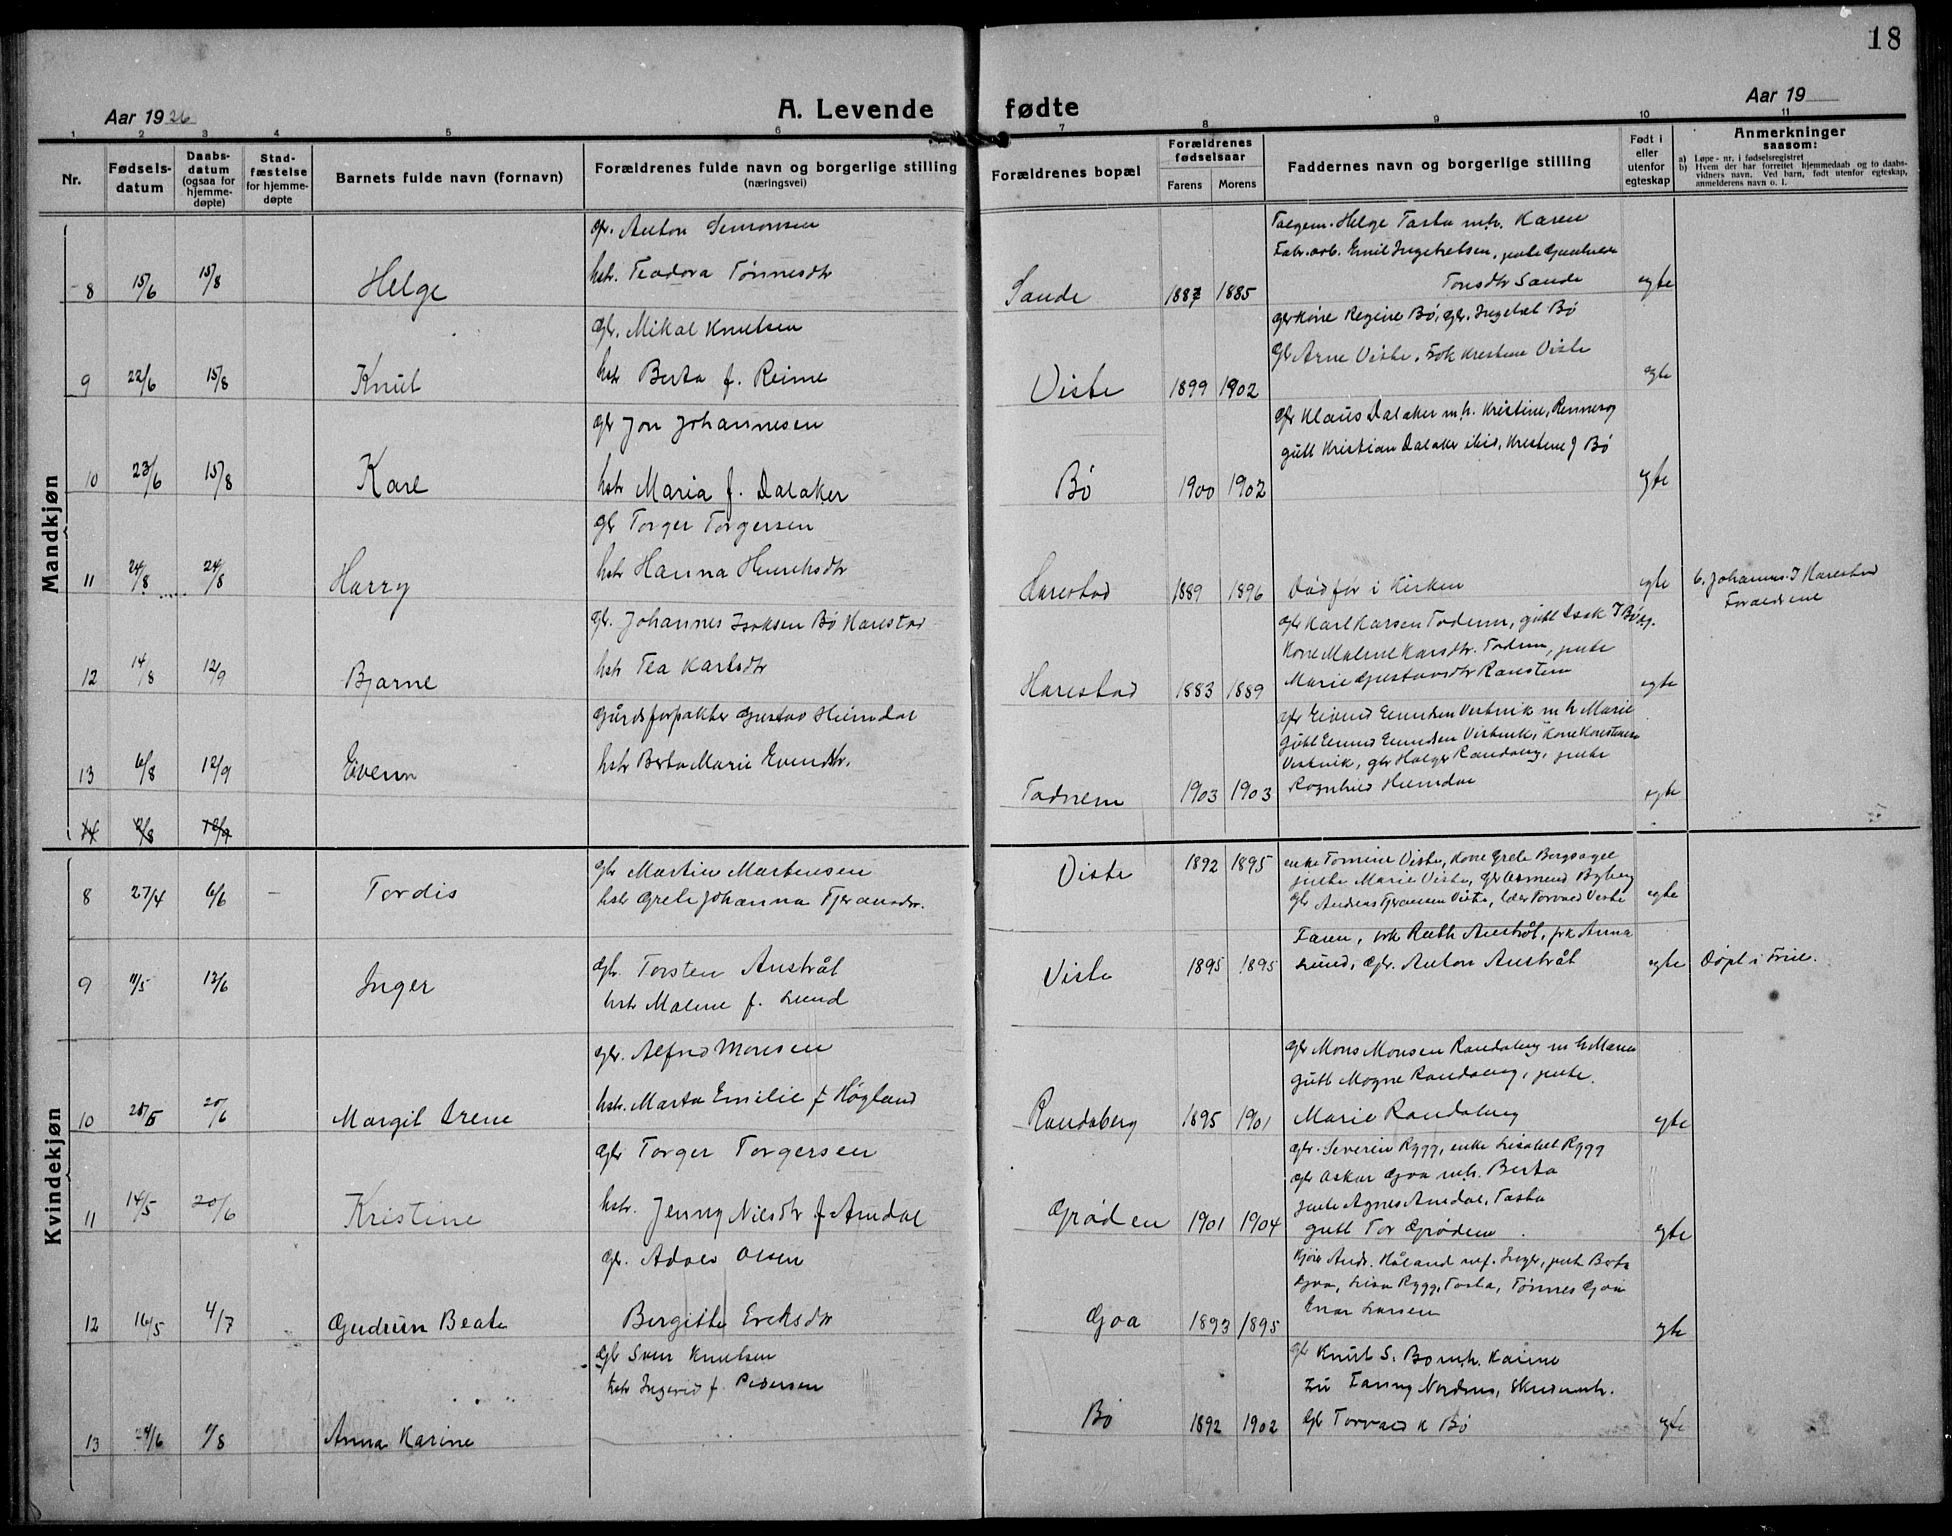 18
Aar 1926
A. Levende fødte
Aar 19
1 2 3 4 5 6 7 8 9 10 11
Nr.
Fødselsdatum
Daabsdatum (ogsaa for hjemmedøpte)
Stadfæstelse for hjemmedøpte
Barnets fulde navn (fornavn)
Forældrenes fulde navn og borgerlige stilling
(næringsvei)
Forældrenes bopæl
Forældrenes fødselsaar
Farens Morens
Faddernes navn og borgerlige stilling
Født i eller utenfor egteskap
Anmerkninger saasom:
a) Løpe-nr. i fødselsregistret
b) Hvem der har forrettet hjemmedaab og to daabsvidners navn. Ved barn, født utenfor egteskap, anmelderens navn o. l.
Mandkjøn
8 15/6 15/8 Helge
Anton Simonsen
hstr. Teodora Tønnesdtr
Sande 1887 1885
Helge Tasta m.h. Karen
Fabr.arb. Emil Ingebretsen, pute
Tonsdtr Sande
egte
9 22/6 15/8 Knut
gbr. Mikal Knutsen
hstr Berta f. Reime
Viste 1899 1902
gbrkone Regine Bø, gbr. Ingebret Bø
gbr Arne Viste, frk Kristine Viste
egte
10 23/6 15/8 Kare
gbr Jon Johannesen
hstr Maria f. Dalaker
Bø 1900 1902
gbr Klaus Dalaker m.h. Kristine, Rennesøy
gutt Kristian Dalaker ibid, Kristine J Bø
egte
11 24/8 24/8 Harry
gbr Torger Torgersen
hstr Hanna Henriksdtr
Harestad 1889 1896
i Kirken
egte
b. Johannes I Harestad
Forældrene
12 14/8 12/9 Bjarne
gbr. Johannes Isaksen Bø Harestad
hstr Tea Karlsdtr
Harestad 1883 1889
gbr Karl Karsen Todnem, gutt Isak I Bø
Kone Malene Karsdtr. Todnem, pute
Marie Gustavsdtr
egte
13 6/8 12/9
Gårdsforpakter Gustav Heimdal
hstr Berta Marie Evendtr.
Todnem 1903 1903
gbr Eivind Enundsen Vistvik m h Marie
gutt Enund Enundsen Vistvik, Kone
Vistvik, gbr Holger Randaberg, pute
Ragnhild Heimdal
egte
14 2/8 12/9
Kvindekjøn
8 27/4 6/6 – Tordis
gbr Martin Martinsen
hstr Grete Johanna
Viste 1892 1895
enke Tomine Viste, Kone Grete Bergsagel
pute Marie Viste, gbr Osmund Byberg
gbr Andreas Viste, Torvald Viste
egte
9 11/5 13/6 Inger
gbr. Torsten Austråt
hstr Malene f. Lund
Viste 1895 1895
Faren, frk Ruth Austråt, frk Anna
Lund, gbr. Anton Austråt
egte Døpt i
10 20/6 Margit Irene
gbr. Alfred Monsen
hstr. Marta Emilie f Høgland
Randaberg 1895 1901
gbr Mons Monsen Randaberg m h Maren
gutt Mogne Randaberg, pute
Marie Randaberg
egte
11 14/5 20/6 Kristine
gbr Torger Torgersen
hstr. Jenny Nilsdtr f Amdal
Grøden 1901 1904
gbr. Severin Rygg, enke Lisabet Rygg
gbr Oskar Goa m.h. Berta
pute Agnes Amdal, Tasta
gutt Tor Grødem
egte
12 16/5 4/7 Gudrun Beate
gbr. Adolv Olsen
Birgitte Eriksdtr
Goa 1893 1895
Ands. Håland m.f. Inger, pute Berta
Goa, Lisa Rygg, Tasta, Tønnes Goa
Einar Larsen
egte
13 24/6 1/8 Anna Karine
gbr Sven Knutsen
hstr Ingerid f. Pedersen
Bø 1892 1902
gbr Knut S. Bø m.h. Karine
Fanny
gbr Torvald K Bø
egte